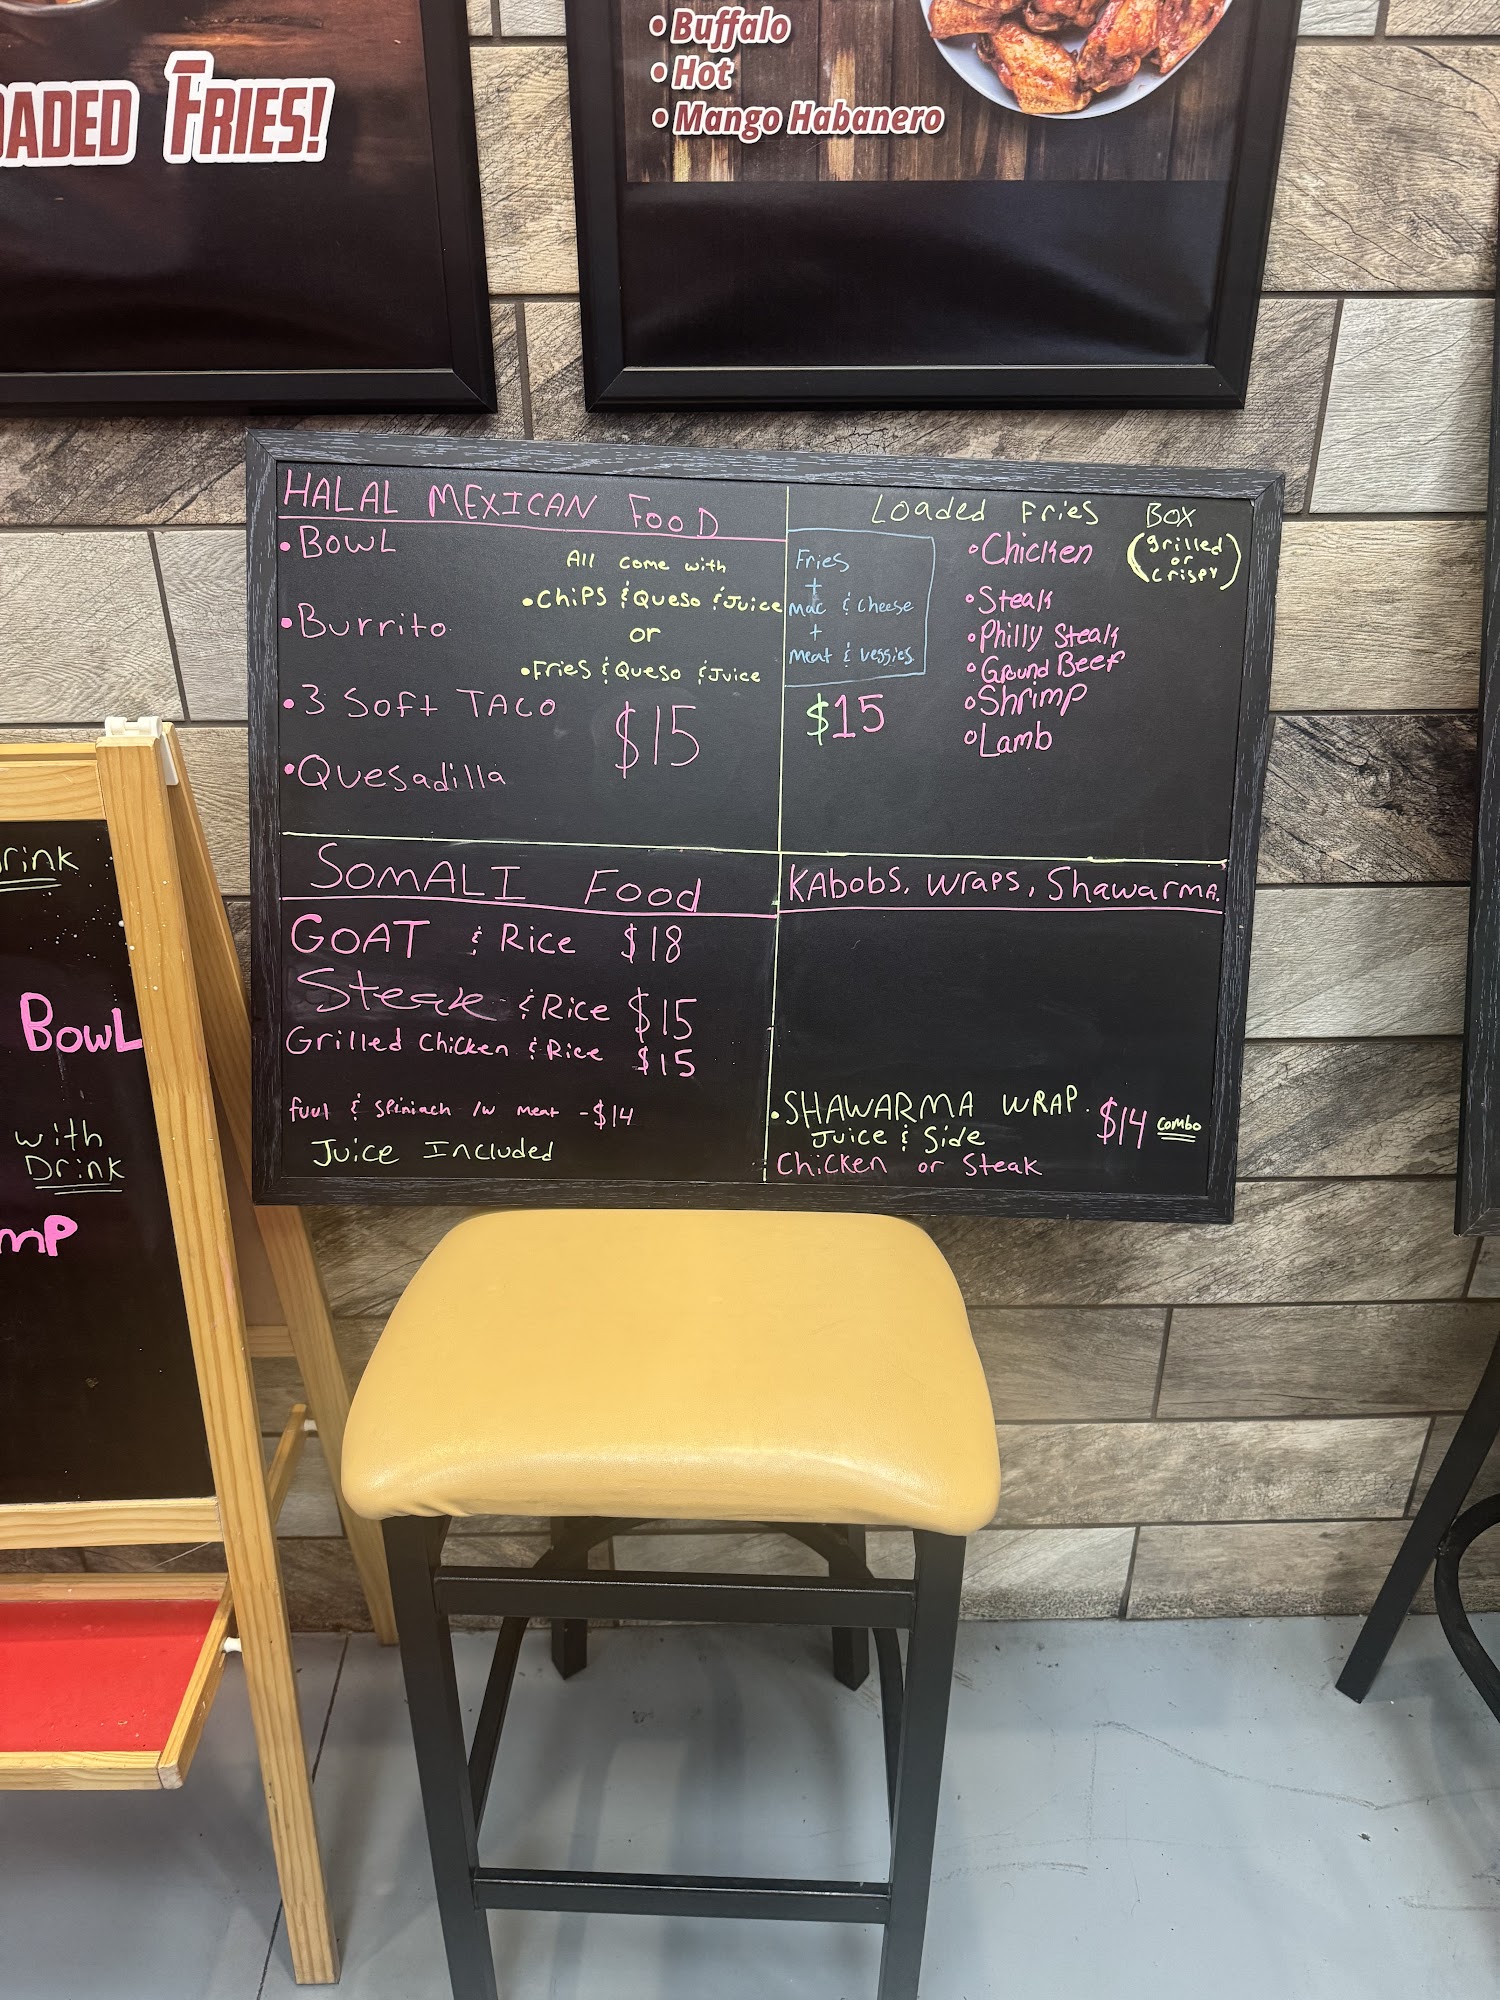 ADED FRIES!
• Buffalo
• Hot
• Mango Habanero
HALAL MEXICAN FOOD
• BOWL
• Burrito
• 3 Soft TACO
• Quesadilla
All come with
• CHIPS & Queso & Juice
or
• Fries & Queso & Juice
$15
Loaded Fries BOX
Fries
+
Mac & Cheese
+
Meat & Veggies
$15
• Chicken (grilled
or
Crispy)
• Steak
• Philly Steak
• Ground Beef
• Shrimp
• Lamb
SOMALI Food
GOAT & Rice $18
Steak & Rice $15
Grilled Chicken & Rice $15
fuul & Spiniach /w meat - $14
Juice Included
KAbobs, Wraps, Shawarma.
• SHAWARMA WRAP. $14 combo
Juice & Side
Chicken or Steak
rink
BowL
with
Drink
mP